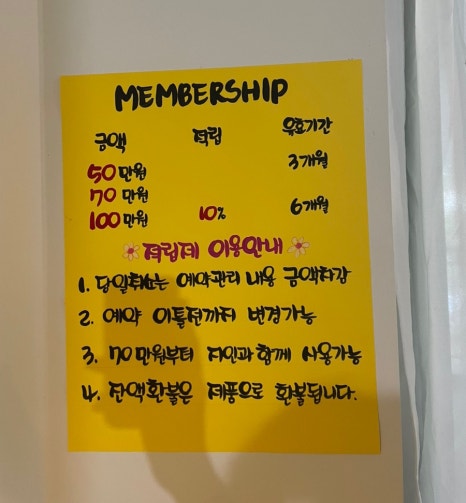 MEMBERSHIP
금액 적립 유효기간
50만원 3개월
70만원
100만원 10% 6개월
적립제 이용안내
1. 당일취소는 예약관리 내용 금액차감
2. 예약 이틀전까지 변경가능
3. 70만원부터 지인과 함께 사용가능
4. 잔액환불은 제품으로 환불됩니다.